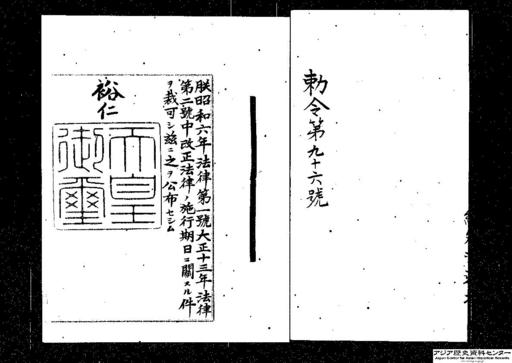 勅令第九十六號
朕昭和六年法律第一號大正十三年法律
第二號中改正法律ノ施行期日ニ關スル件
ヲ裁可シ茲ニ之ヲ公布セシム
裕仁
天皇
御璽
アジア歴史資料センター
Japan Center for Asian Historical Records